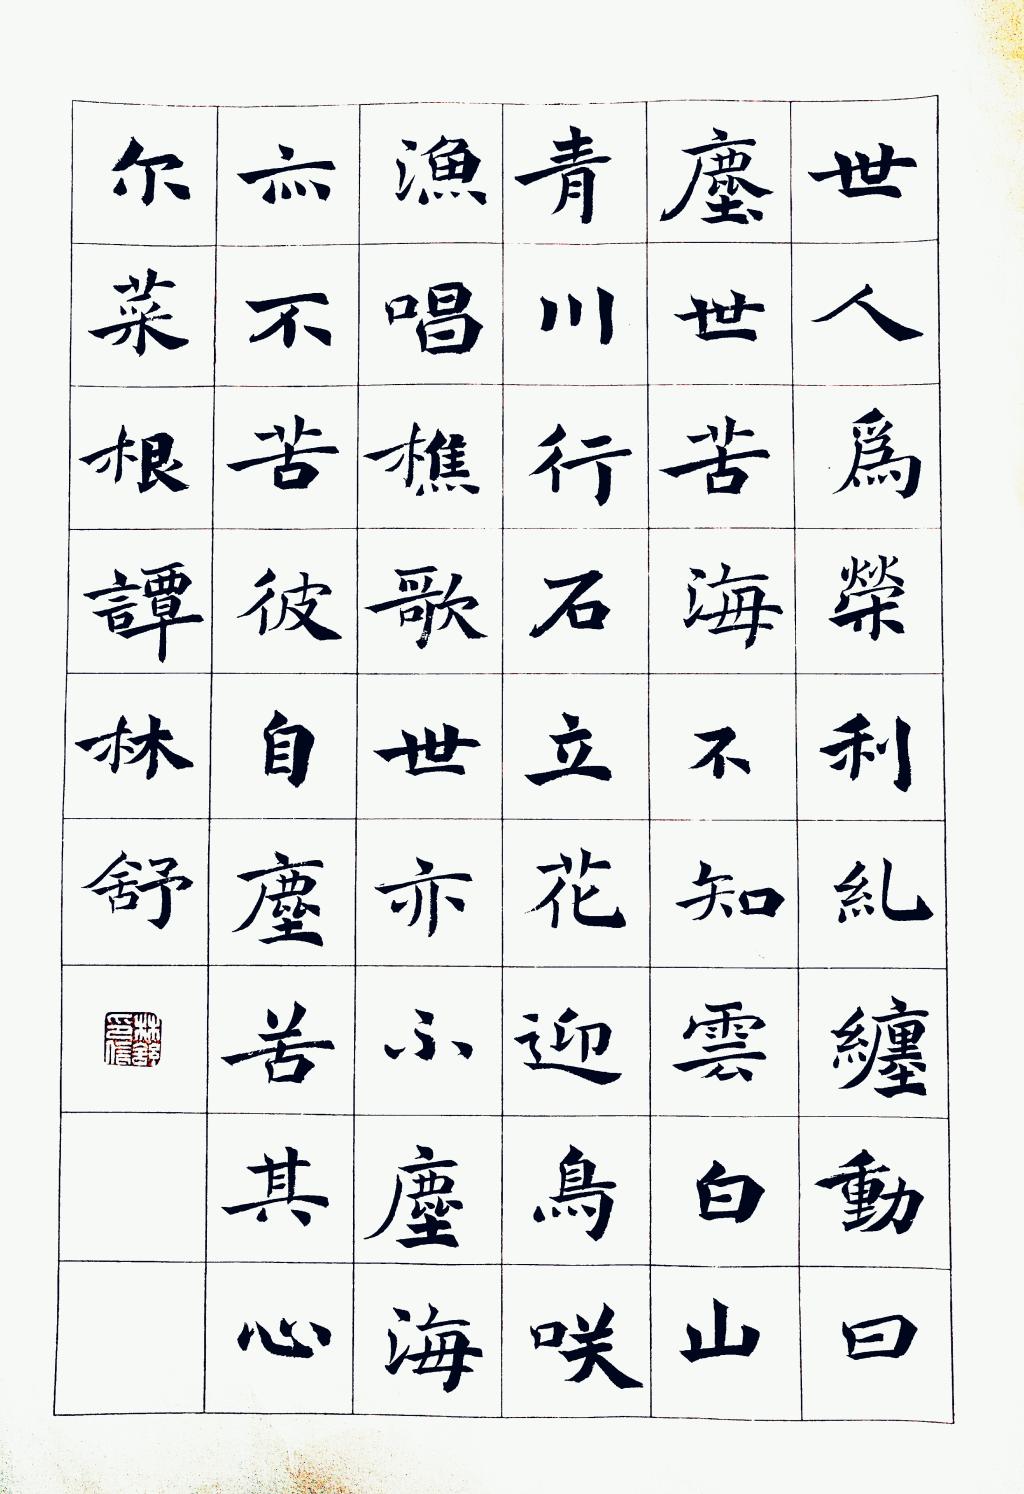 世人爲榮利糺纏動曰
塵世苦海不知雲白山
青川行石立花迎鳥咲
漁唱樵歌世亦不塵海
亦不苦彼自塵苦其心
尔菜根譚林舒
林舒印信